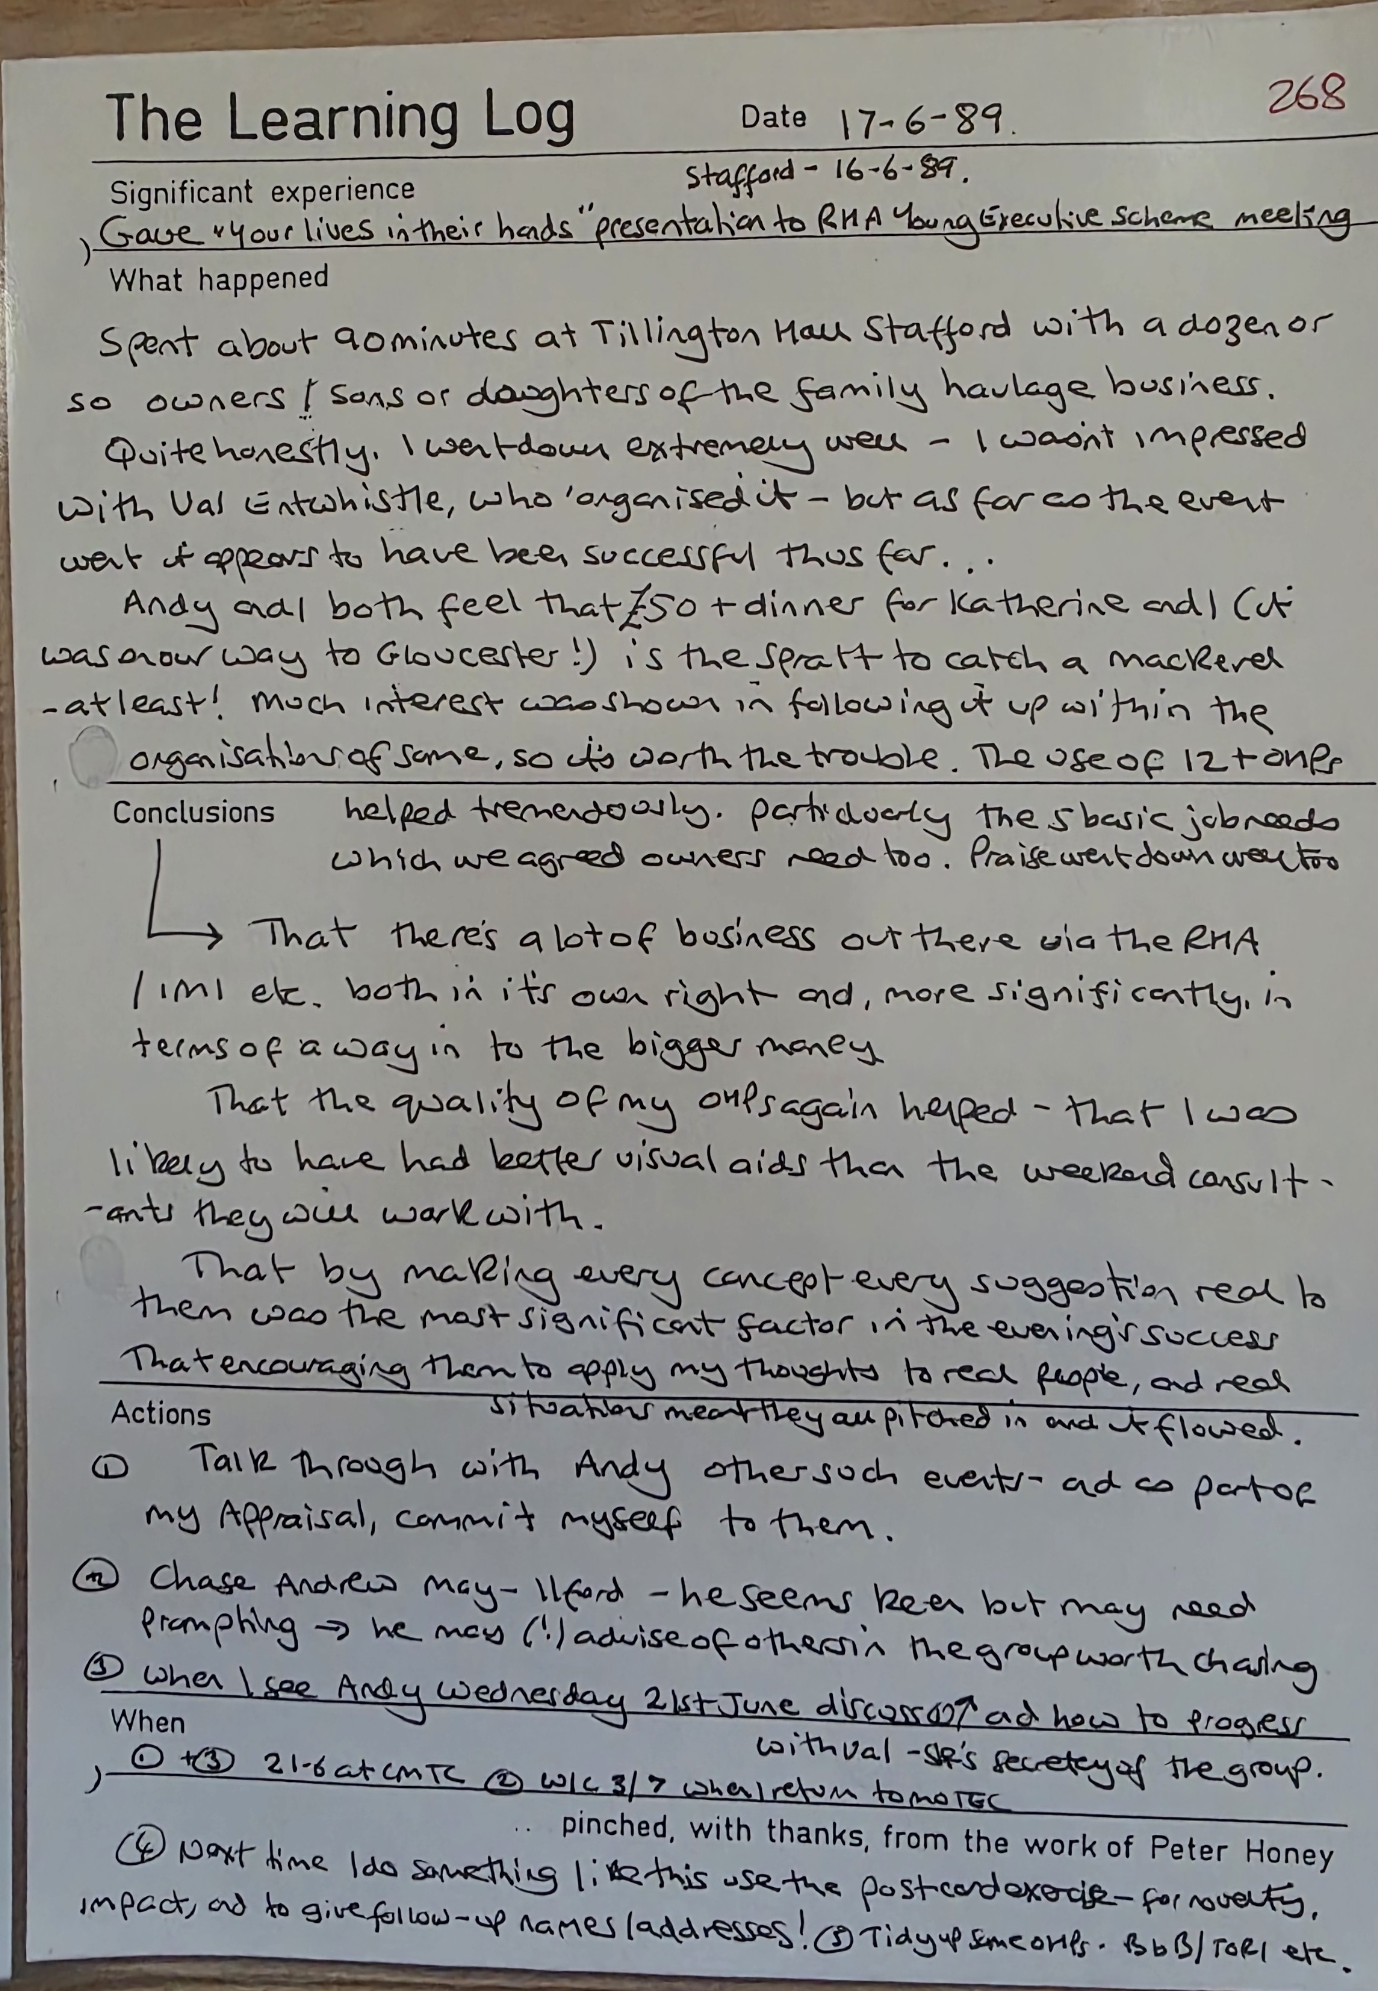 268
The Learning Log Date 17-6-89.
Stafford - 16-6-89.
Significant experience
Gave "your lives in their hands" presentation to RHA Young Executive Scheme meeting
What happened
Spent about 90 minutes at Tillington Hall Stafford with a dozen or
so owners / sons or daughters of the family haulage business.
Quite honestly, I went down extremely well - I wasn't impressed
with Val Entwhistle, who 'organised it - but as far as the event
went it appears to have been successful thus far...
Andy and I both feel that £50 + dinner for Katherine and I (it
was on our way to Gloucester!) is the spratt to catch a mackerel
- at least! Much interest was shown in following it up within the
organisations of some, so it's worth the trouble. The use of 12+ OHPs
Conclusions helped tremendously. particularly the 5 basic job needs
which we agreed owners need too. Praise went down well too
→ That there's a lot of business out there via the RHA
/ IMI etc. both in it's own right and, more significantly, in
terms of a way in to the bigger money
That the quality of my OHPs again helped - that I was
likely to have had better visual aids than the weekend consult-
-ants they will work with.
That by making every concept every suggestion real to
them was the most significant factor in the evening's success
That encouraging them to apply my thoughts to real people, and real
situations meant they all pitched in and it flowed.
Actions
① Talk through with Andy other such events - ad as part of
my Appraisal, commit myself to them.
② Chase Andrew May - Ilford - he seems keen but may need
prompting → he may (!) advise of others in the group worth chasing
③ When I see Andy Wednesday 21st June discuss ① ↑ ad how to progress
with Val - she's secretey of the group.
When
① + ③ 21-6 at CMTC ② W/C 3/7 when I return to MOTEC
.. pinched, with thanks, from the work of Peter Honey
④ Next time I do something like this use the postcard exercise - for novelty,
impact, ad to give follow-up names/addresses! ⑤ Tidy up some OHPs. BbB/TORI etc.